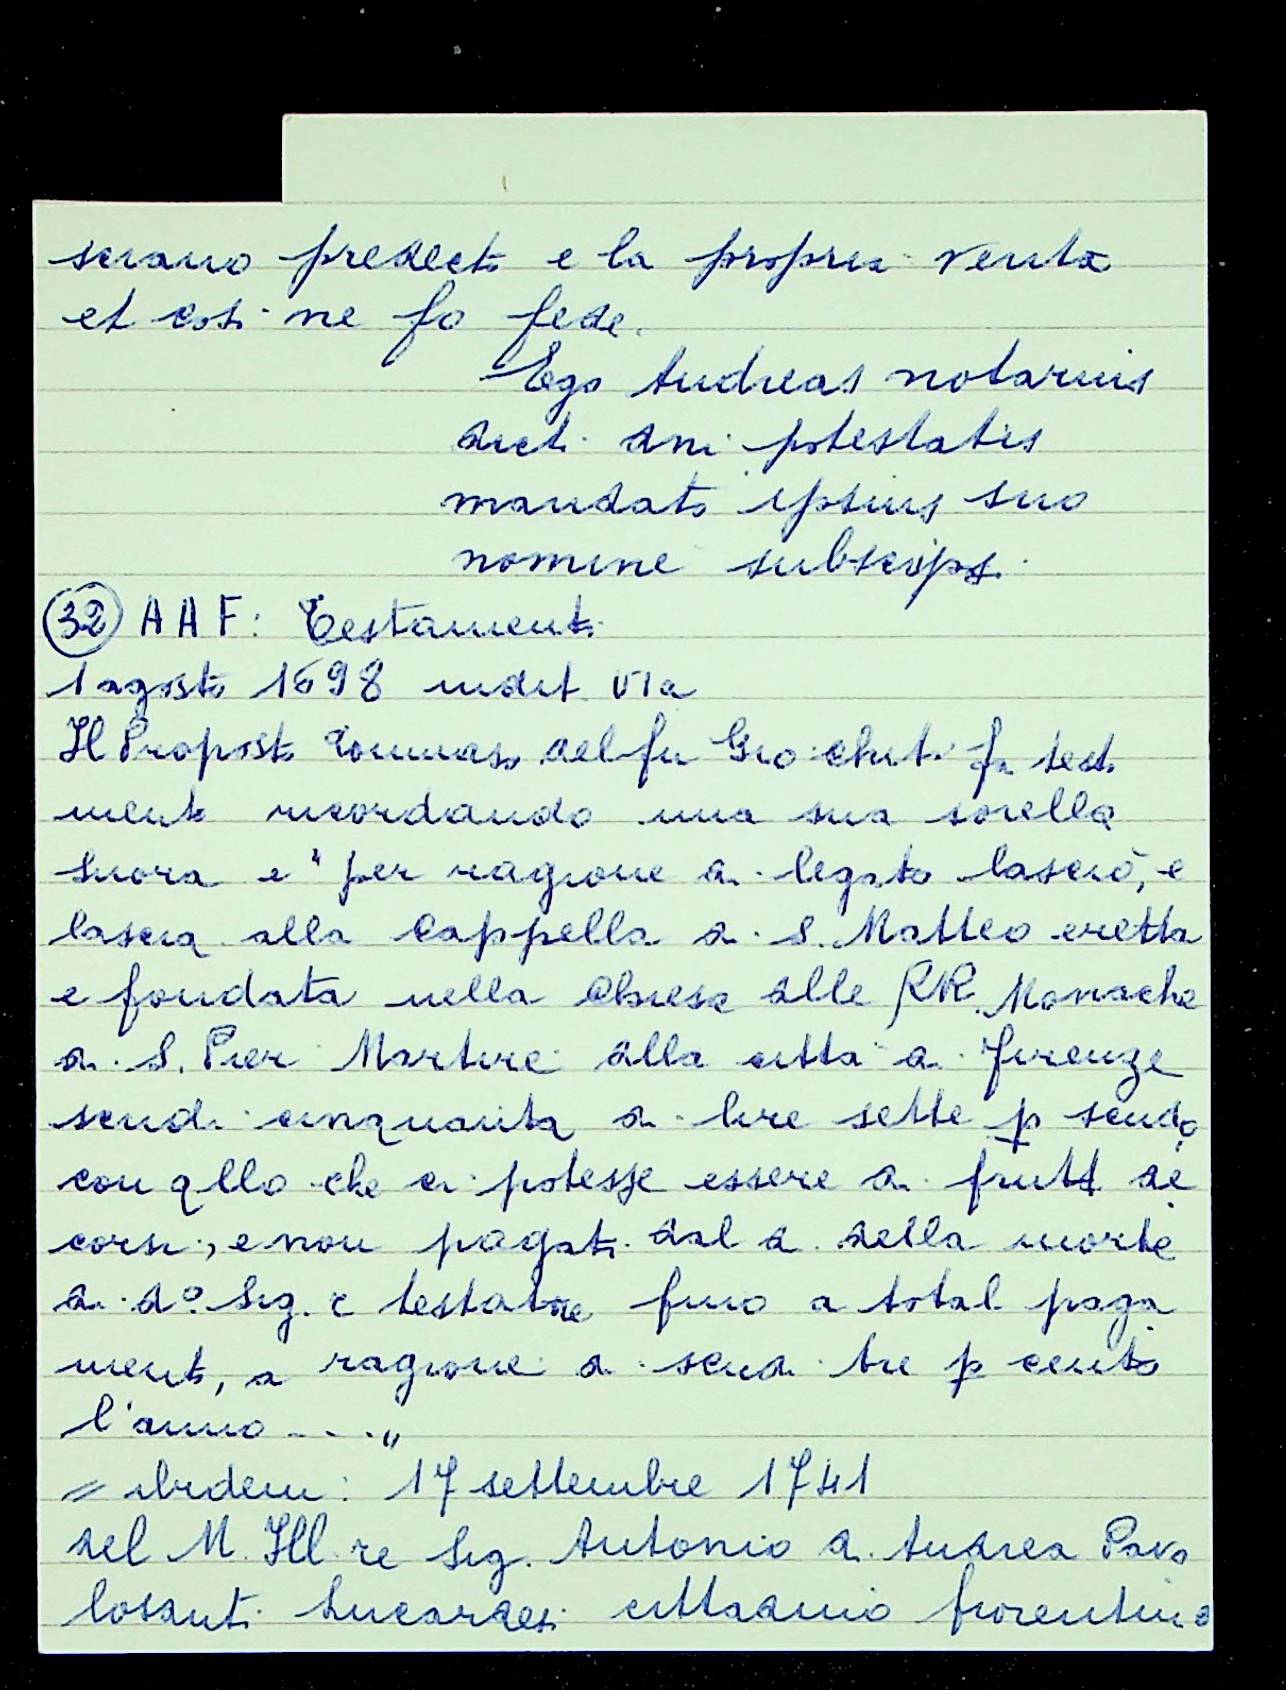 sciano predecto e la propria verità
et così ne fo fede.
Ego Andreas notarius
dicti dni potestatis
mandato ipsius suo
nomine subscrips.
32 AAF: Testamenti
1 agosto 1698 indit. VIa
Il Proposto Tommaso del fu Gio: fa test
mento ricordando una sua sorella
suora e " per ragione di legato lasciò, e
lascia alla Cappella di S. Matteo eretta
e fondata nella Chiesa delle RR. Monache
di S. Pier Martire della città di Firenze
scudi cinquanta di lire sette p scudo
con qllo che ci potesse essere di frutt de
corsi, e non pagati dal dì della morte
di do. Sig. e testatore fino a total paga
mento, a ragione di scudi tre p cento
l'anno ...."
= ibidem: 17 settembre 1741
del M. Ill.re Sig. Antonio di Andrea Pavo
losanti Lucardesi cittadino fiorentino